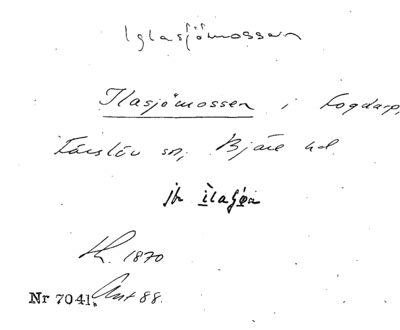 Iglasjömossen
Ilasjömossen i Fogdarp,
Förslöv sn, Bjäre hd
jfr ìlasjøn
1870
Nr 7041. Ant 88.